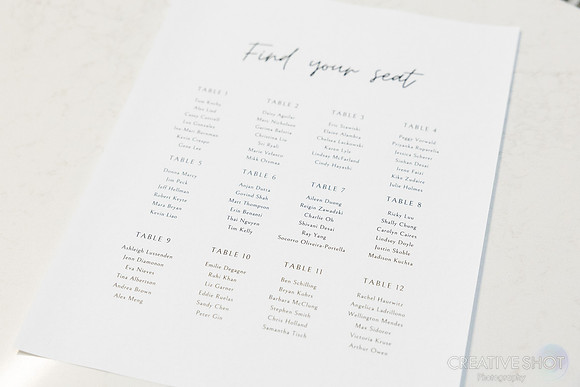 Find your seat
TABLE 1
Tom Roche
Wes Lied
Casey Carroll
Luz Gonzalez
Kevin Crespo
Gene Lee
TABLE 2
Dario Aguilar
Marc Nicholson
Garima Raheja
Christine Liu
Sir Ryall
Mario Velasco
Mikk Otsmaa
TABLE 3
Eric
Elaine Alambra
Chelsea Laskowski
Karen Lyle
Lindsay McFarland
Cindy Hayashi
TABLE 4
Peggy Vorwald
Priyanka Ruparelia
Jessica Scherer
Sishan Desai
Irene Faivi
Kiko Zodaire
Julie Holmes
TABLE 5
Donna Marry
Jim Peck
Jeff Hellman
Robert Keyte
Mara Bryan
Kevin Linn
TABLE 6
Anjan Dutta
Govind Shah
Matt Thompson
Erin Bonanti
Thai Nguyen
Tim Kelly
TABLE 7
Aileen Duong
Roigin Zawadski
Charlie Oh
Shivani Desai
Ray Yang
Socorro Oliveira-Portella
TABLE 8
Ricky Luu
Shally Chung
Carolyn Caires
Lindsey Doyle
Justin Skohle
Madison Kuchta
TABLE 9
Ashleigh Lussenden
Jenn Diamonon
Eva Nieves
Tina Albertson
Andrea Brown
Alex Meng
TABLE 10
Emilie Degagne
Ruhi Khan
Liz Garner
Eddie Ruelas
Sandy Chen
Peter Gin
TABLE 11
Ben Schilling
Bryan Kohrs
Barbara McClung
Stephen Smith
Chris Holland
Samantha Tisch
TABLE 12
Rachel Haurwitz
Angelica Ladrillono
Wellington Mendes
Max Sidorov
Victoria Kruse
Arthur Owen
CREATIVE SHOT
Photography